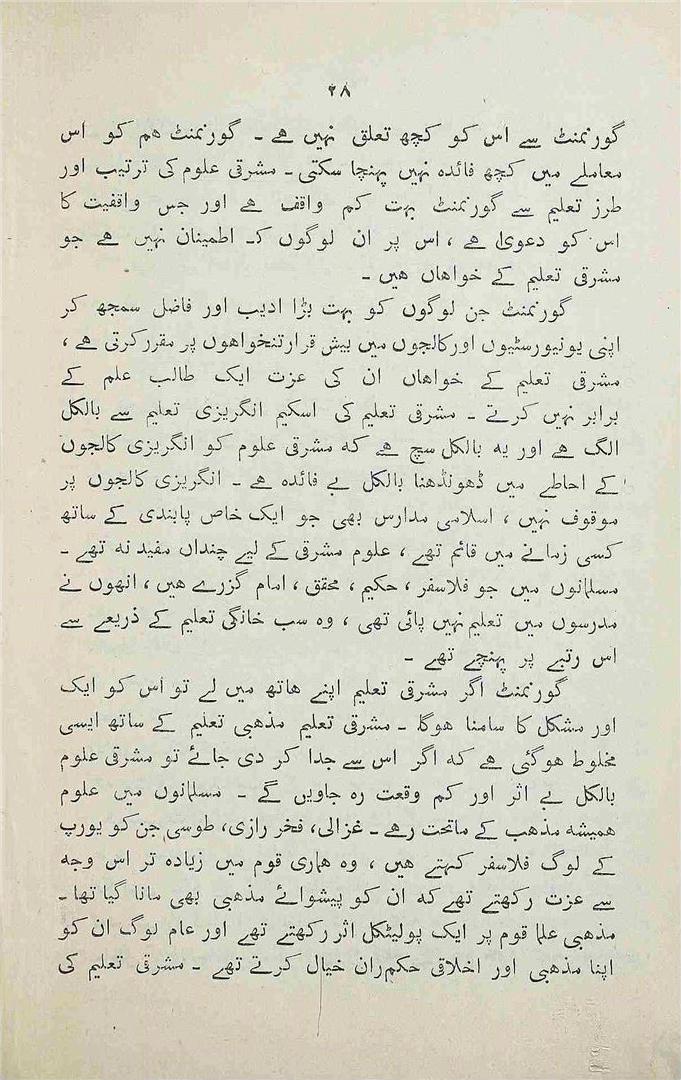 ۲۸
گورنمنٹ سے اس کو کچھ تعلق نہیں ہے ۔ گورنمنٹ ہم کو اس
معاملے میں کچھ فائدہ نہیں پہنچا سکتی ۔ مشرقی علوم کی ترتیب اور
طرز تعلیم سے گورنمنٹ بہت کم واقف ہے اور جس واقفیت کا
اس کو دعویٰ ہے ، اس پر ان لوگوں کـ اطمینان نہیں ہے جو
مشرقی تعلیم کے خواہاں ہیں ۔
گورنمنٹ جن لوگوں کو بہت بڑا ادیب اور فاضل سمجھ کر
اپنی یونیورسٹیوں اور کالجوں میں بیش قرار تنخواہوں پر مقرر کرتی ہے ،
مشرقی تعلیم کے خواہاں ان کی عزت ایک طالب علم کے
برابر نہیں کرتے ۔ مشرقی تعلیم کی اسکیم انگریزی تعلیم سے بالکل
الگ ہے اور یہ بالکل سچ ہے کہ مشرقی علوم کو انگریزی کالجوں
کے احاطے میں ڈھونڈھنا بالکل بے فائدہ ہے ۔ انگریزی کالجوں پر
موقوف نہیں ، اسلامی مدارس بھی جو ایک خاص پابندی کے ساتھ
کسی زمانے میں قائم تھے ، علوم مشرقی کے لیے چنداں مفید نہ تھے ۔
مسلمانوں میں جو فلاسفر ، حکیم ، محقق ، امام گزرے ہیں ، انھوں نے
مدرسوں میں تعلیم نہیں پائی تھی ، وہ سب خانگی تعلیم کے ذریعے سے
اس رتبے پر پہنچے تھے ۔
گورنمنٹ اگر مشرقی تعلیم اپنے ہاتھ میں لے تو اُس کو ایک
اور مشکل کا سامنا ہوگا ۔ مشرقی تعلیم مذہبی تعلیم کے ساتھ ایسی
مخلوط ہوگئی ہے کہ اگر اس سے جدا کر دی جائے تو مشرقی علوم
بالکل بے اثر اور کم وقعت رہ جاویں گے ۔ مسلمانوں میں علوم
ہمیشہ مذہب کے ماتحت رہے ۔ غزالی، فخر رازی، طوسی جن کو یورپ
کے لوگ فلاسفر کہتے ہیں ، وہ ہماری قوم میں زیادہ تر اس وجہ
سے عزت رکھتے تھے کہ ان کو پیشوائے مذہبی بھی مانا گیا تھا ۔
مذہبی علما قوم پر ایک پولیٹکل اثر رکھتے تھے اور عام لوگ ان کو
اپنا مذہبی اور اخلاقی حکم ران خیال کرتے تھے ۔ مشرقی تعلیم کی